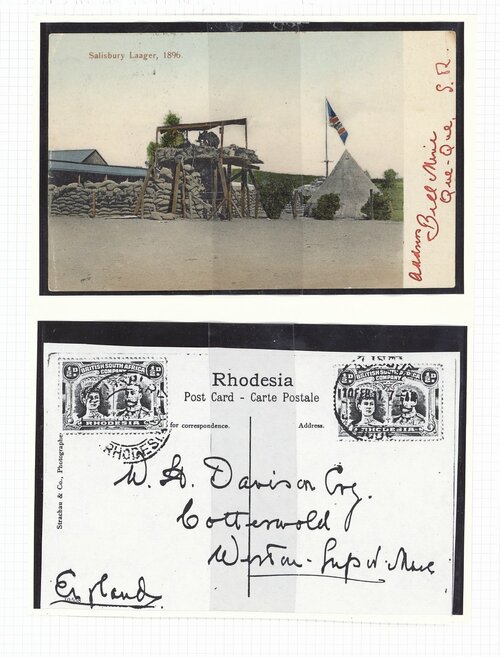 Salisbury Laager, 1896.
Address
Bell Mine
Que-Que, S.R.
½D BRITISH SOUTH AFRICA COMPANY ½D
RHODESIA
RHODESIA
Rhodesia
Post Card - Carte Postale
for correspondence.
Address.
½D BRITISH SOUTH AFRICA COMPANY ½D
RHODESIA
Strachan & Co., Photographer
W. H. Davison Esq.
Cotterswold
Weston-Sup r Mare
England